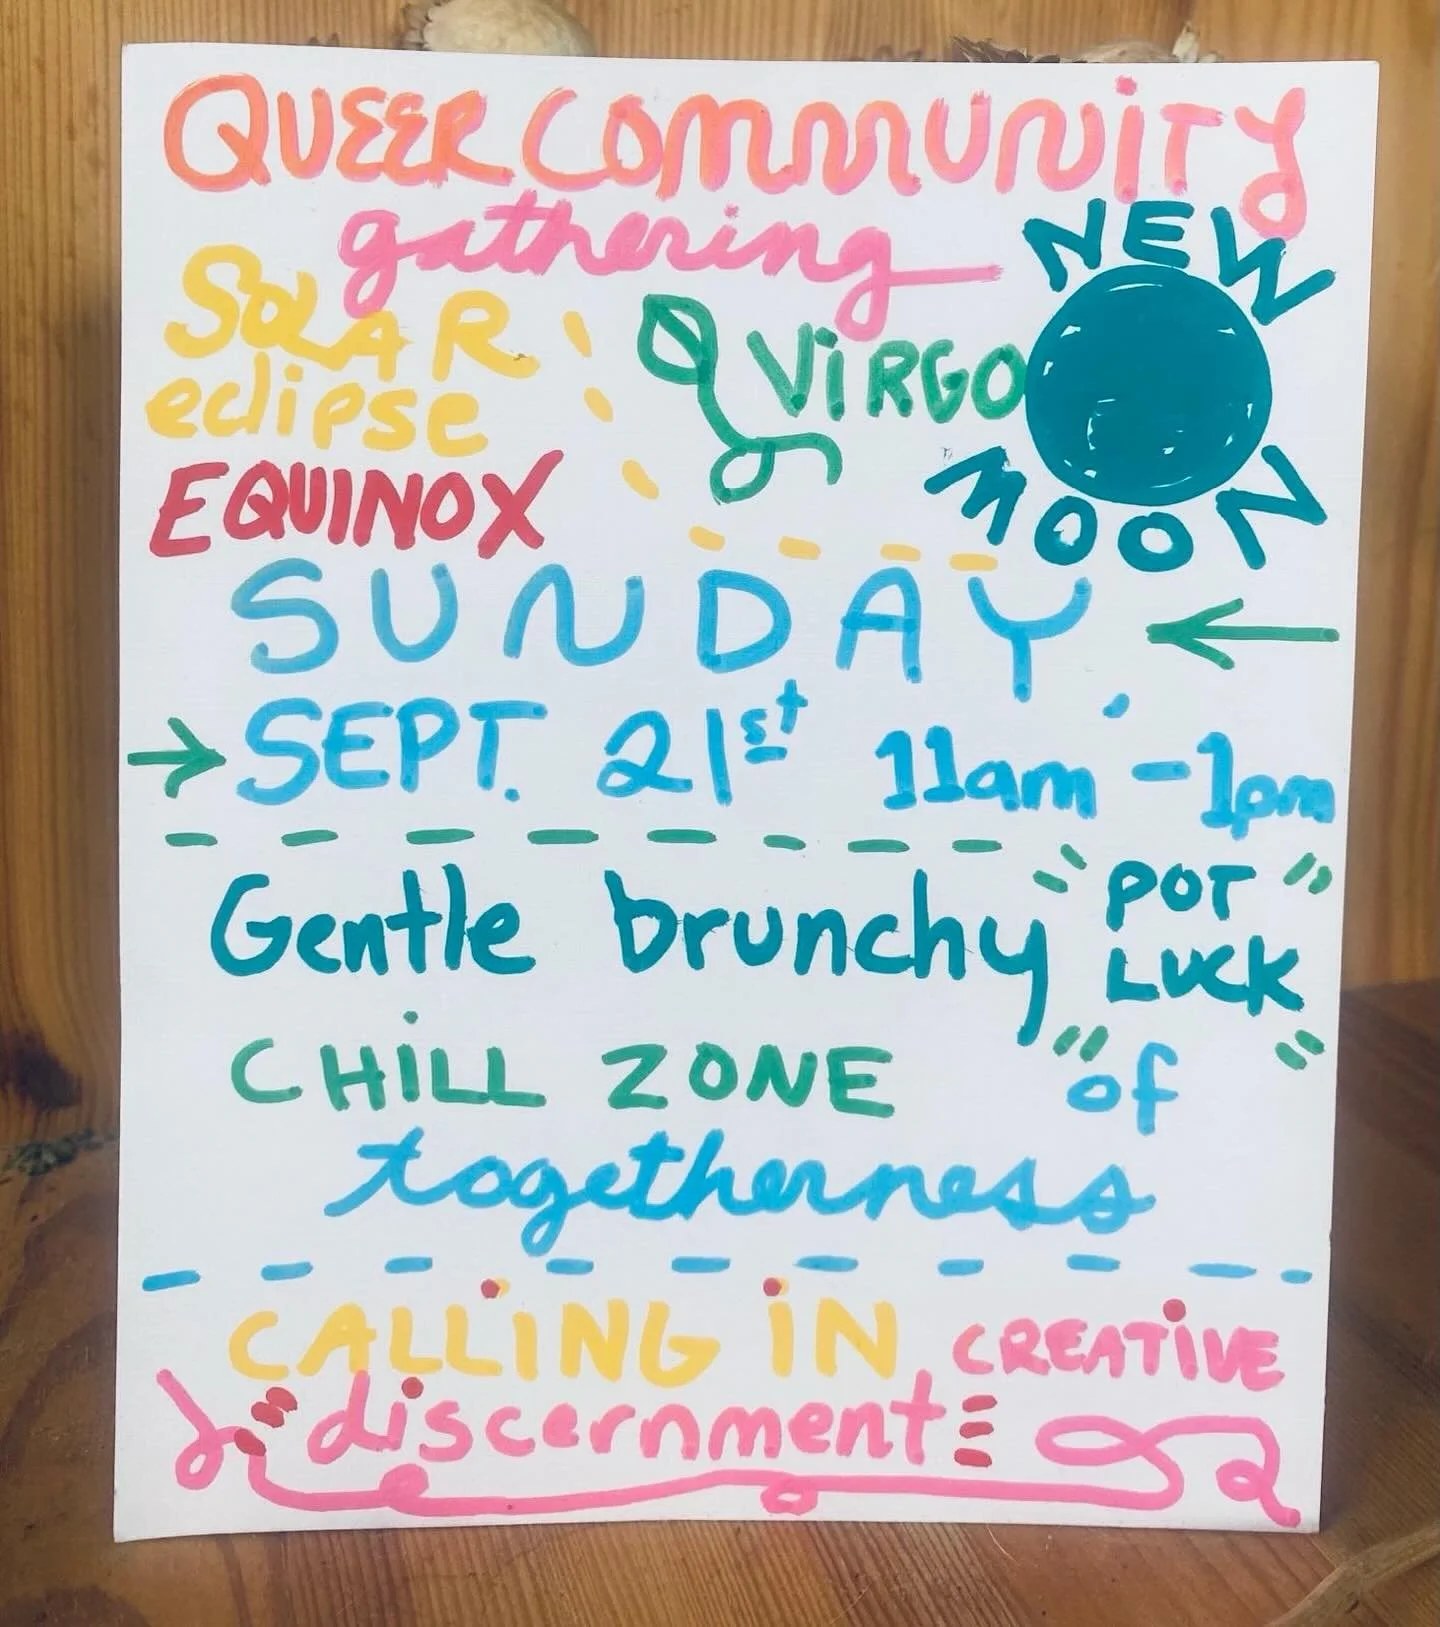 QUEER COMMUNITY
gathering
SOLAR
eclipse
EQUINOX
VIRGO
NEW
MOON
SUNDAY,
SEPT. 21st 11am-1pm
Gentle brunchy "POT
LUCK"
CHILL ZONE of
togetherness
CALLING IN CREATIVE
discernment